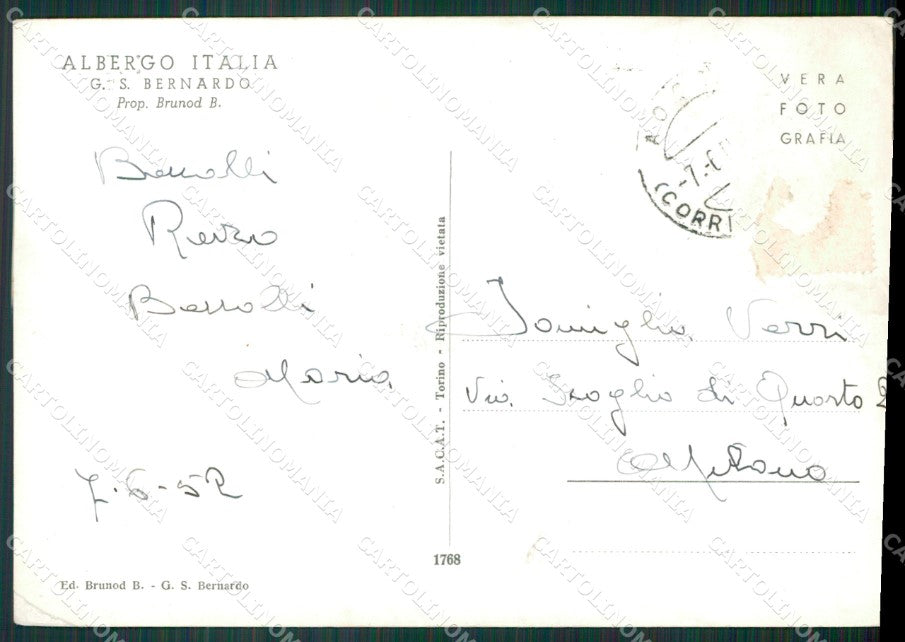 ALBERGO ITALIA
G. S. BERNARDO
Prop. Brunod B.
VERA
FOTO
GRAFIA
AOSTA
-7.-6
(CORRI
Renzo
Maria
7-6-52
S.A.C.A.T. - Torino - Riproduzione vietata
Famiglia Verri
Via Scoglio di Quarto 2
Milano
1768
Ed. Brunod B. - G. S. Bernardo
CARTOLINOMANIA